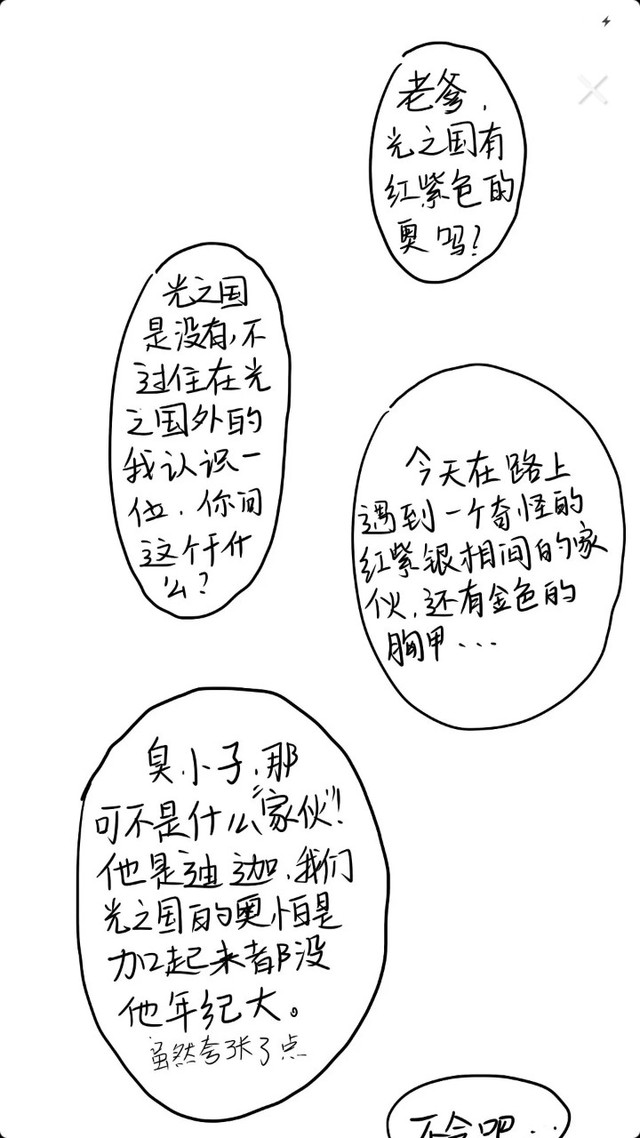 老爹，
光之国有
红紫色的
奥吗？
光之国
是没有，不
过住在光
之国外的
我认识一
位，你问
这个干什
么？
今天在路上
遇到一个奇怪的
红紫银相间的家
伙，还有金色的
胸甲...
臭小子，那
可不是什么“家伙”！
他是迪迦，我们
光之国的奥怕是
加起来都没
他年纪大。
虽然夸张了点
不会吧...